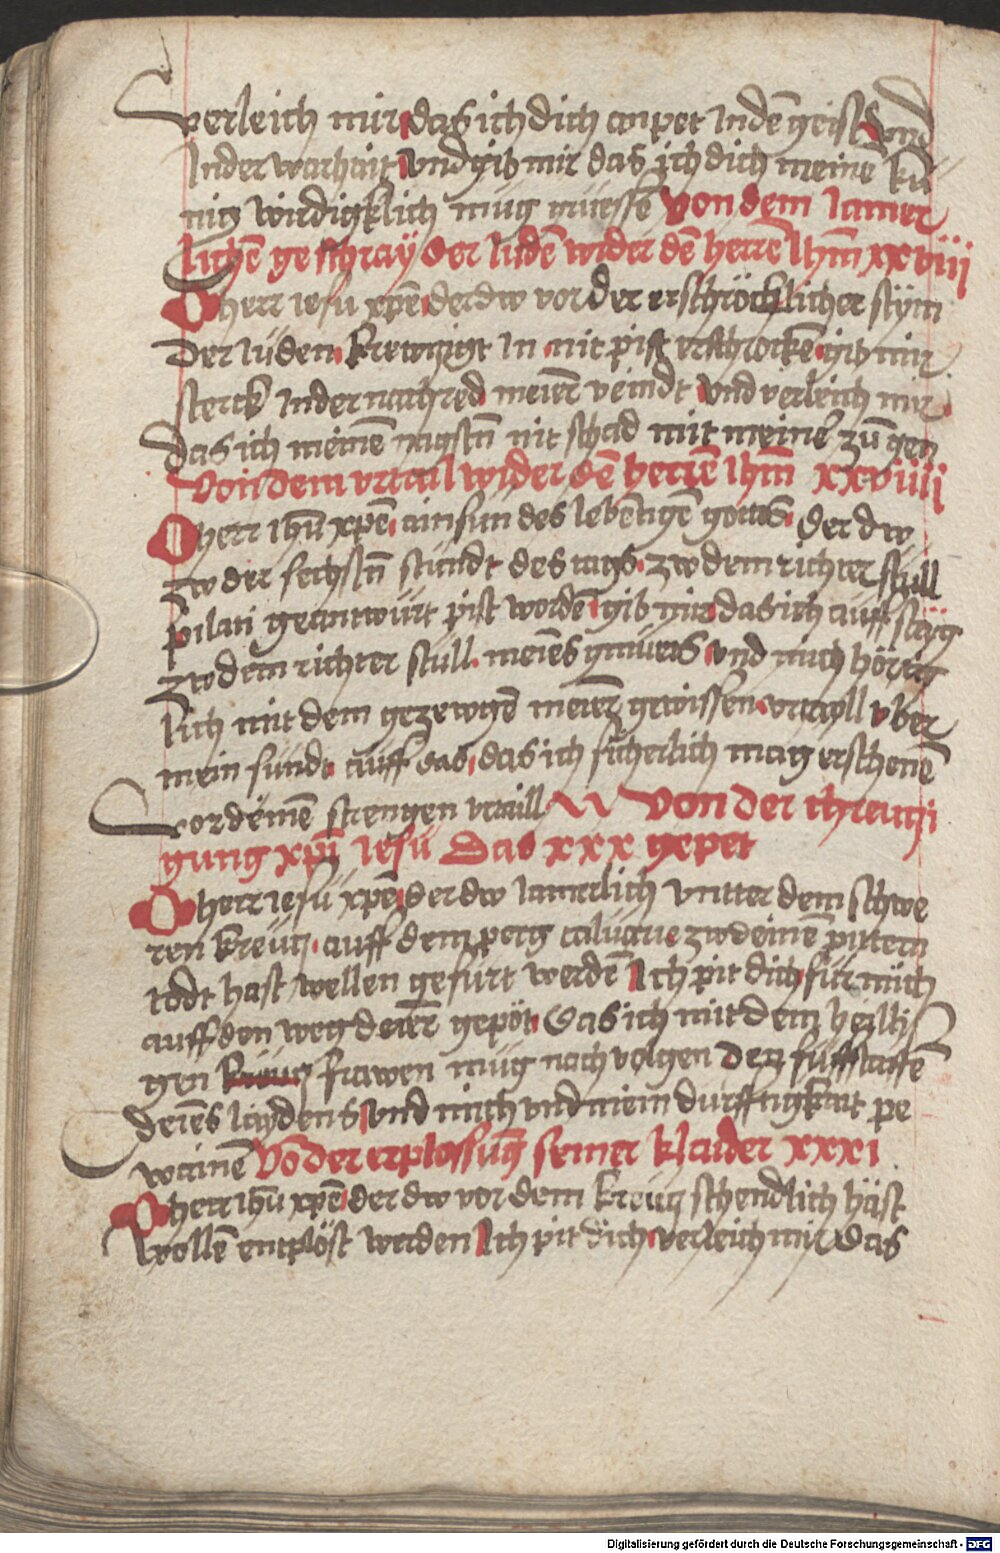 verleich mir das ich dich anpet In dē geist vnd
In der warhait vnd gib mir das ich dich meinē kü
nig wirdigklich müg grüessē Von dem Iamer
lichē geschray der Iudē wider dē herrē Ihm̄ xxviii
O herr iesu xpē der dw vor der erschröcklicher stym
Der Iuden krewtzigt In nit pist erschrockē gib mir
sterck In der nachred meier̄ veindt Vnd verleich mir
das ich meinē nagstn̄ nit schad mit meiner zūgen
Von dem vrtail wider dē herrē Ihm̄ xxviiii
O herr ihū xpē ain sun des lebētigē gottes der dw
zw der sechstn̄ stundt des tags zw dem richter stull
pilati geantwurt pist wordē gib mir das ich auff steyg
zw dem richter stull meiēs gmuets vnd mich hörtig
lich mit dem gezewgē meier̄ gewissen vrtayll vber
mein sündt auff das das ich sicherlich mag erschenē
vor deinē strengen vrtaill Von der chreutzi
gung xpī Iesu Das xxx gepet
O herr iesu xpē der dw Iamerlich vntter dem schwe
ren kreutz auff dem perg caluarie zw deinē pittern
todt hast wellen gefürt werdē Ich pit dich für mich
auff den weg deier̄ gepöt das ich mit dem heilli
gen kreutz frawen müg nach volgen den fuesstaffē
deiēs laydens vnd mich vnd mein durfftigkait pe
wainē Vō der erplossūg seiner klaider xxxi
O herr ihū xpē der dw vor dem kreutz schendlich hast
wollē entplöst werden Ich pit dich verleich mir das
Digitalisierung gefördert durch die Deutsche Forschungsgemeinschaft - DFG